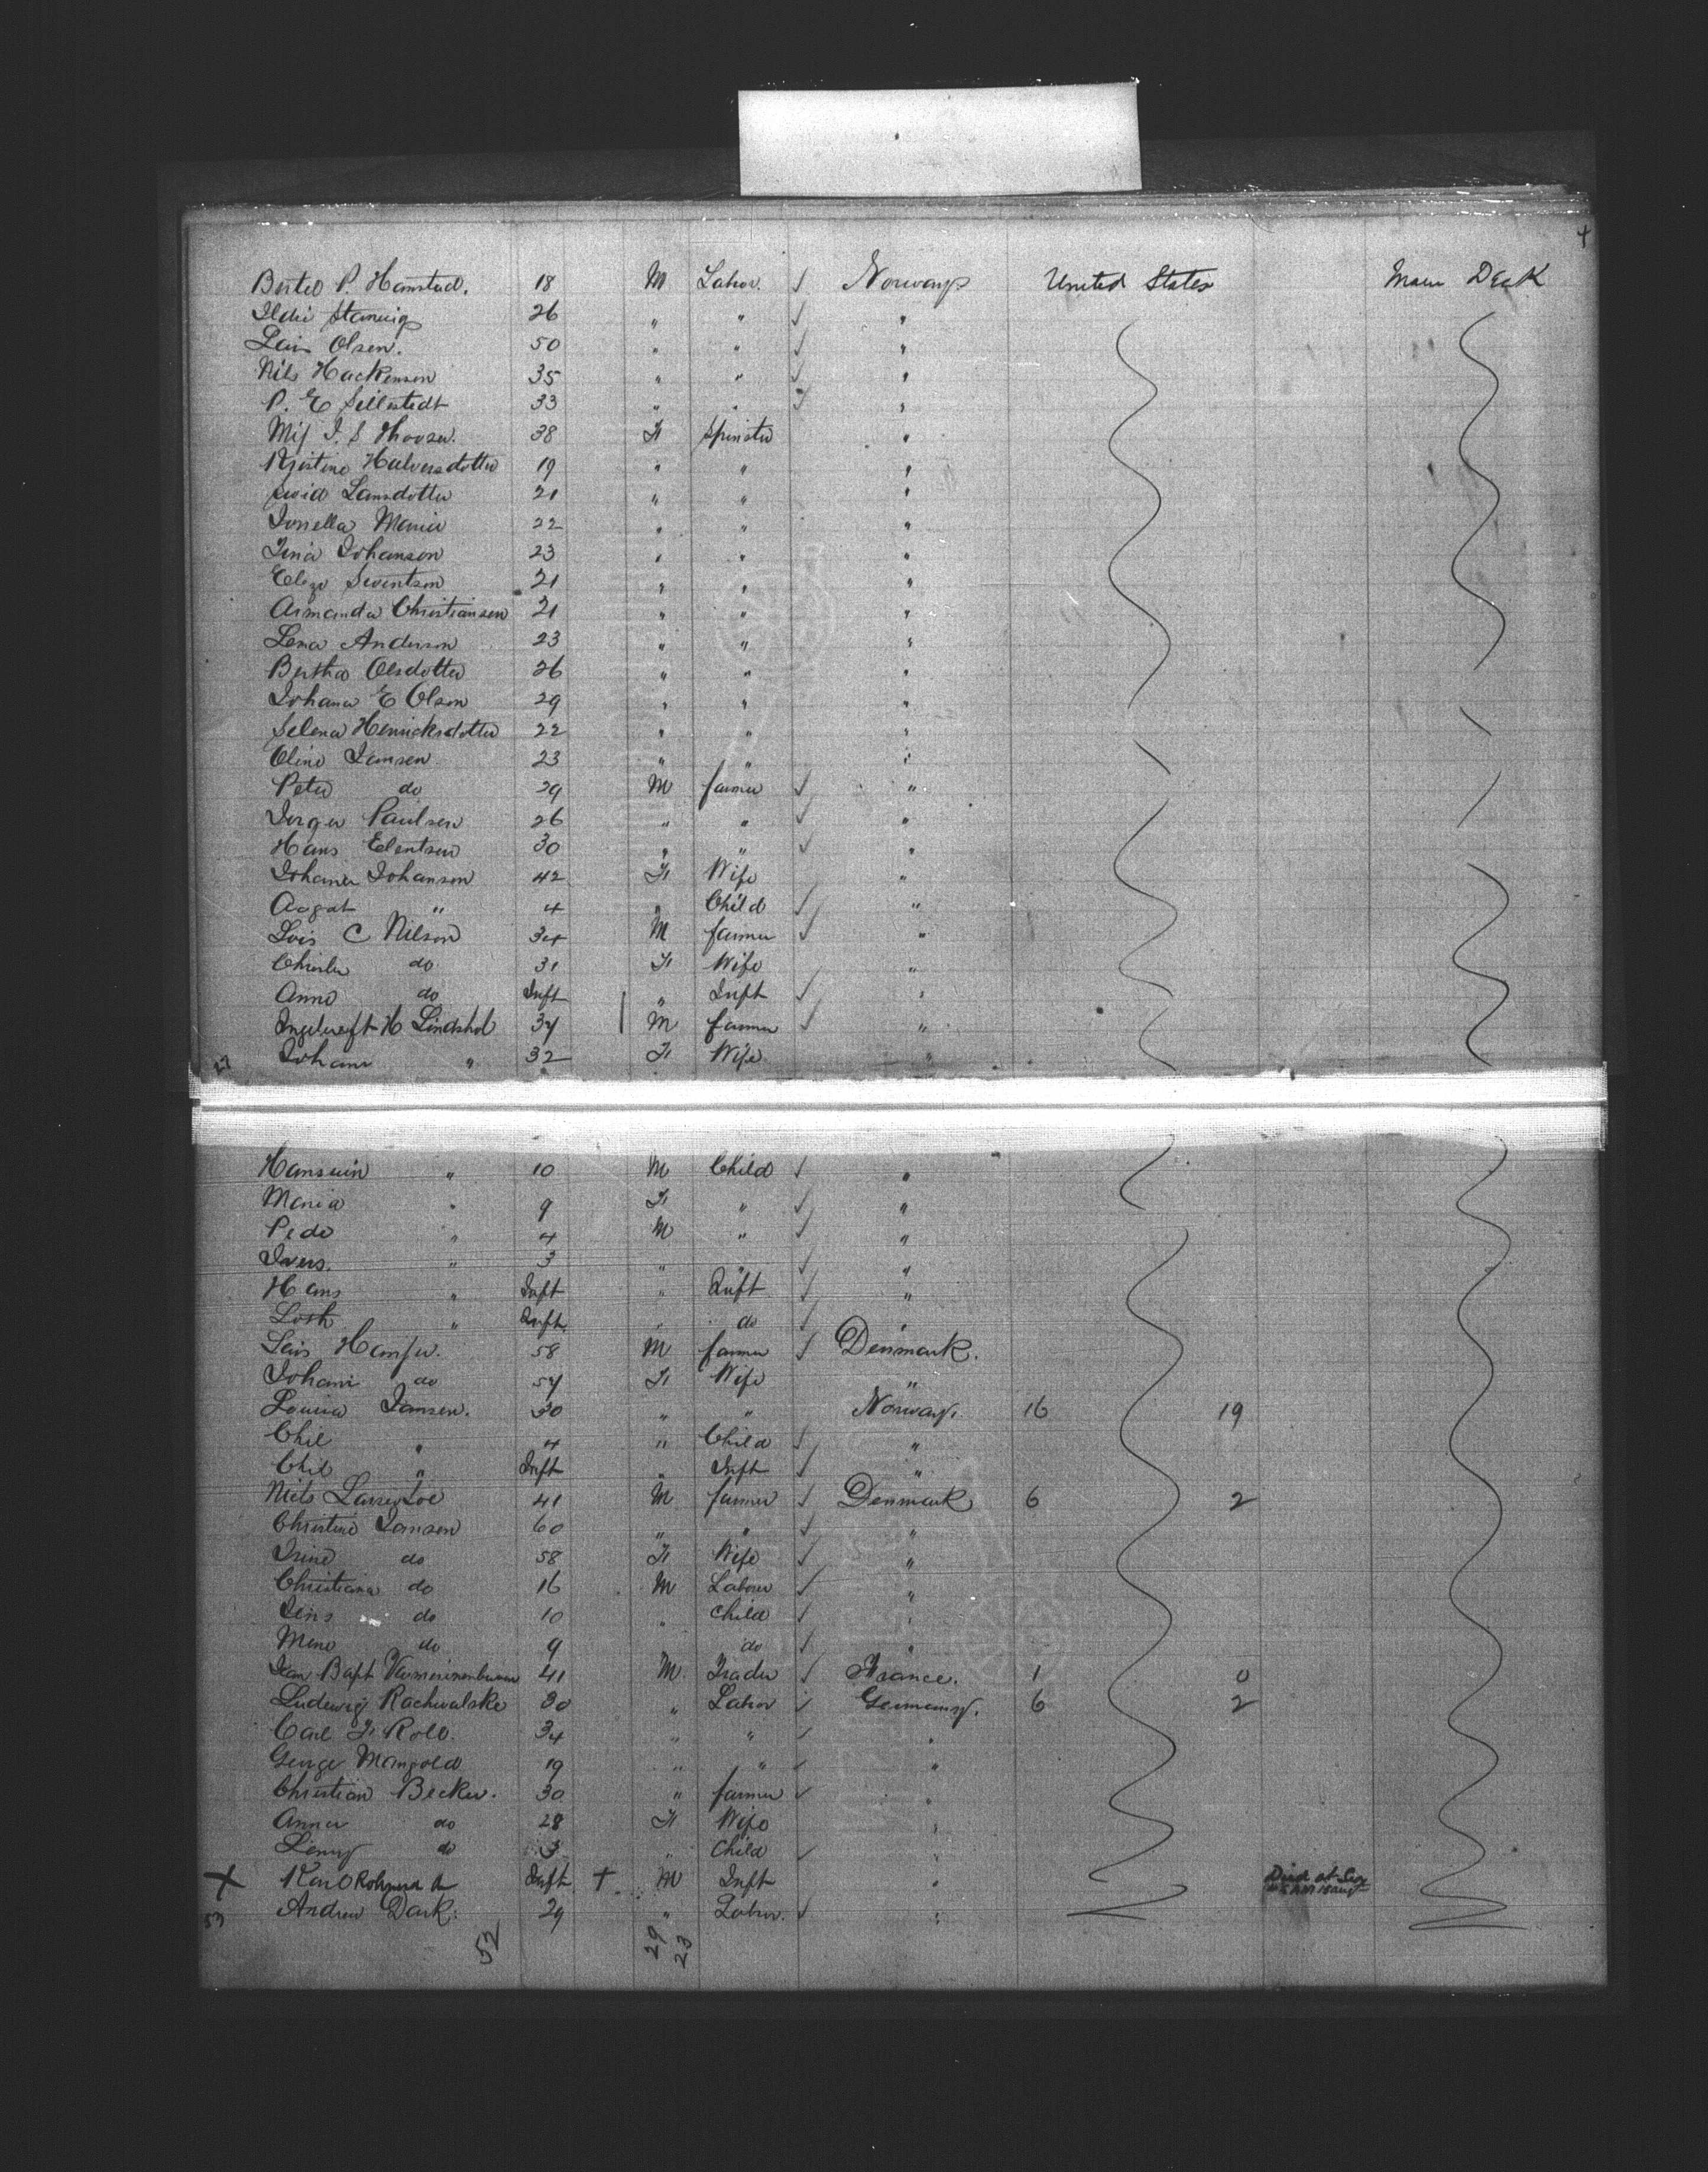 +
Bertel P. Hamstad. 18 M Labor. ✓ Norway United States Main Deck
26 " " ✓ "
Lars Olsen. 50 " " ✓ "
Nils Hackenson 35 " " ✓ "
P. E Sillestedt 33 " " ✓ "
Miss I. S Thoosen. 38 F Spinster "
Kjistine Halversdotter 19 " " "
Lansdotter 21 " " "
Jonella Maria 22 " " "
Tina Johanson 23 " " "
Elize Sweintson 21 " " "
Armanda Christiansen 21 " " "
Lena Anderson 23 " " "
Bertha Olesdotter 26 " " "
Johana E Olson 29 " " "
Selena Henricksdotter 22 " " "
Oline Jansen 23 " " "
Peter do 29 M farmer ✓ "
Jorgen Paulsen 26 " " ✓ "
Hans Elentsen 30 " " ✓ "
Johana Johanson 42 F Wife "
Aogat " 4 " Child ✓ "
Lois C Nilson 34 M farmer ✓ "
do 31 F Wife "
Anna do Inft " Inft ✓ "
H Lindshol 34 M farmer ✓ "
27 Johana " 32 F Wife "
Hansuin " 10 M Child ✓ "
Maria " 9 F " ✓ "
Pedo " 4 M " ✓ "
Ivers. " 3 " " ✓ "
Hans " Inft " Inft ✓ "
Losh " Inft. " do ✓ "
Lars 58 M farmer ✓ Denmark.
Johana do 54 F Wife "
Louisa Jansen. 30 " " Norway. 16 19
Chil " 4 " Child ✓ "
Chil " Inft " Inft ✓ "
Niels 41 M farmer ✓ Denmark 6 2
Christine Jansen 60 " " ✓ "
Irine do 58 F Wife ✓ "
Christiana do 16 M Labour ✓ "
Jens do 10 " Child ✓ "
Mene do 9 do ✓ "
Jean Bapt 41 M. Trader ✓ France. 1 0
Ludewig Rachwalske 30 " Labor ✓ Germany. 6 2
Carl F. Roll. 34 " " ✓ "
George Mangold 19 " " ✓ "
Christian Becker. 30 " farmer ✓ "
Anna do 28 F Wife "
Lenny do 3 " Child ✓ "
+ Inft + M Inft " Died at Sea
Andrew Dark. 29 " Labor. ✓ "
53 52 29 23